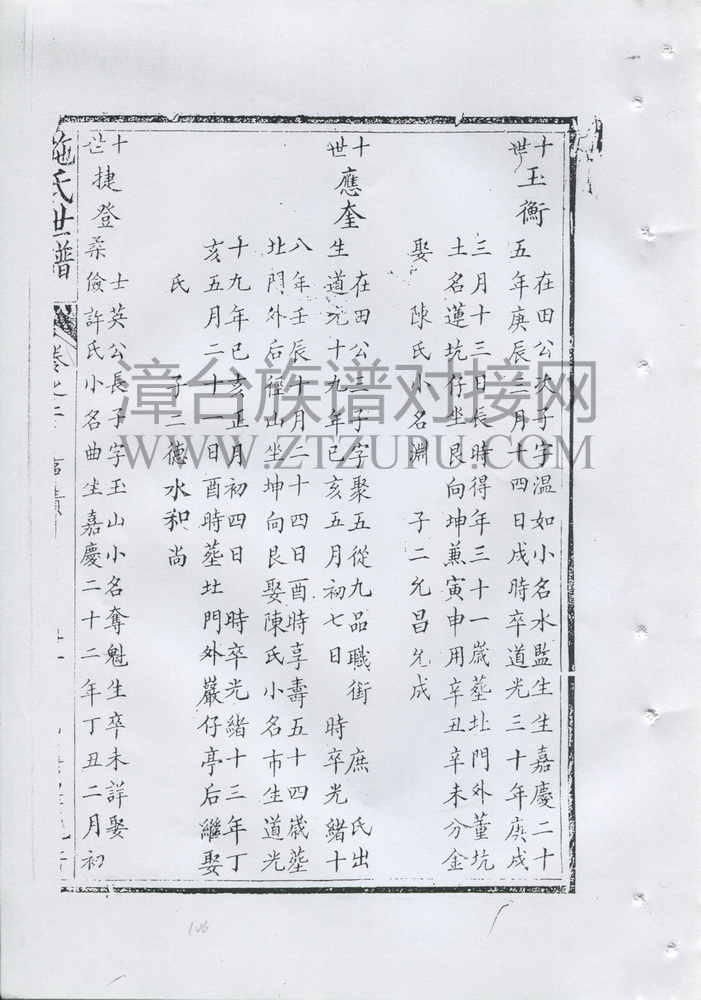 十世
玉衡
在田公次子字温如小名水監生生嘉慶二十
五年庚辰三月十四日戌時卒道光三十年庚戌
三月十三日長時得年三十一歲塟北門外董坑
土名蓮坑仔坐艮向坤兼寅申用辛丑辛未分金
娶陳氏小名淵 子二允昌允成
十世
應奎
在田公三子字聚五從九品職銜 庶氏出
生道光十九年已亥五月初七日 時卒光緒十
八年壬辰十月二十四日酉時享壽五十四歲塟
北門外后徑山坐坤向艮娶陳氏小名市生道光
十九年已亥正月初四日 時卒光緒十三年丁
亥五月二十一日酉時塟北門外巖仔亭后繼娶
氏 子二德水和尚
十世
捷登
士英公長子字玉山小名奪魁生卒未詳娶
柔儉許氏小名曲生嘉慶二十二年丁丑二月初
施氏世譜
卷之
漳台族谱对接网
WWW.ZTZUPU.COM
106